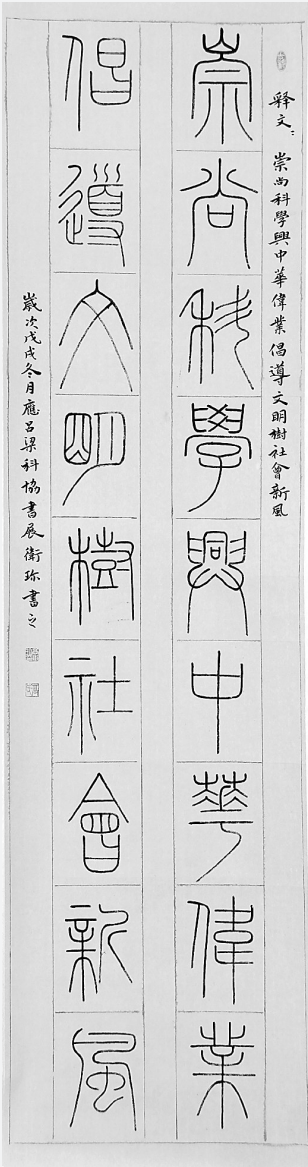 释文：崇尚科學興中華偉業倡導文明樹社會新風
崇尚科學興中華偉業
倡導文明樹社會新風
歲次戊戌冬月應呂梁科協書展衛珍書之